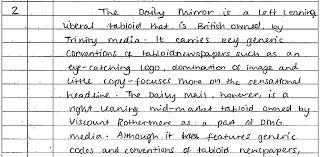 2 The Daily Mirror is a left leaning
liberal tabloid that is British owned, by
Trinity media. It carries key generic
conventions of tabloid newspapers such as an
eye-catching logo, domination of image and
little copy-focuses more on the sensational
headline. The Daily Mail, however, is a
right leaning mid-market tabloid owned by
Viscount Rothermere as a part of DMG
media. Although it features generic
codes and conventions of tabloid newspapers,